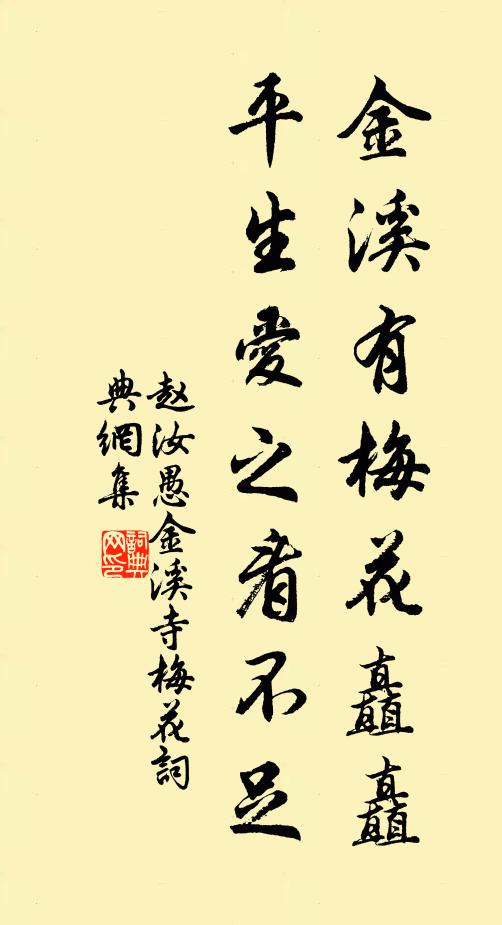 金溪有梅花矗矗
平生愛之看不足
赵汝愚金溪寺梅花詞
典網集
詞典
网印